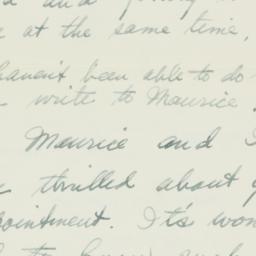 at the same time,
haven't been able to do
write to Maurice
Maurice and I
thrilled about
pointment. It's won
to know such